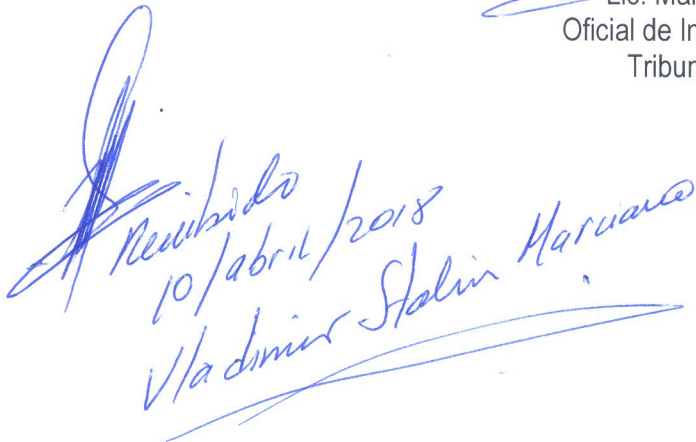 Lic. Mar
Oficial de In
Tribun
Recibido
10/abril/2018
Vladimir Stalin Marciano